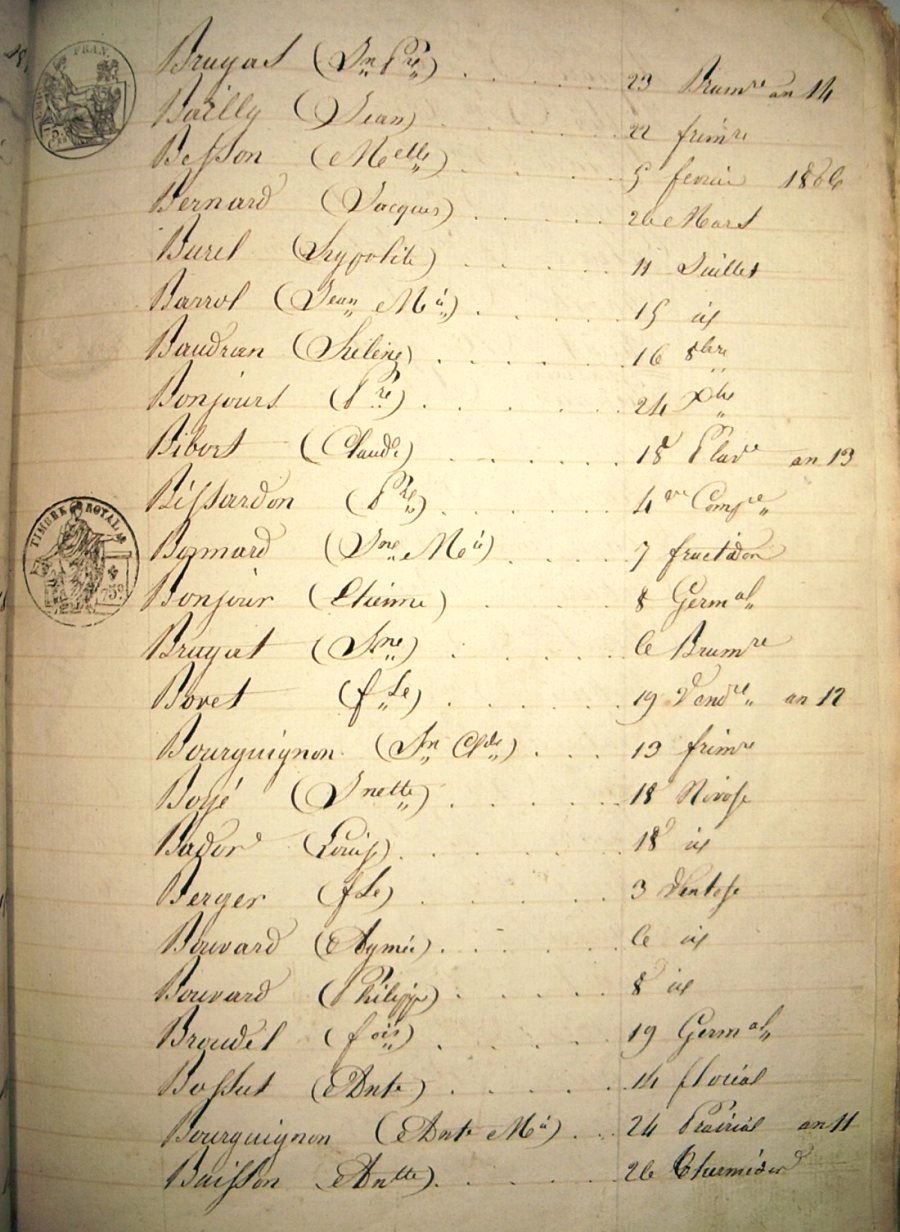 FRAN.
Bruyas (Jn Pre) . . . . . 23 Brumre an 14
Bailly (Jean) . . . . . 22 frimre
Besson (Melle) . . . . . 5 fevrier 1806
Bernard (Jacques) . . . . . 26 Mars
Burel (Hypolite) . . . . . 11 Juillet
Barrol (Jean Mie) . . . . . 15 id
Baudran (Hélène) . . . . . 16 8bre
Bonjours (Pre) . . . . . 24 Xbre
Bibort (Claude) . . . . . 18 Pluve an 13
Bissardon (Pre) . . . . . 4me Compre
Bernard (Jne Mie) . . . . . 7 fructidor
TIMBRE ROYAL
75c
Bonjour (Etienne) . . . . . 8 Germal
Bruyat (Jne) . . . . . 6 Brumre
Bovet (fse) . . . . . 19 Vendre an 12
Bourguignon (Jn Clde) . . . . . 13 frimre
Boyé (Jnette) . . . . . 18 Nivose
Bador (Louise) . . . . . 18 id
Berger (fse) . . . . . 3 Ventose
Bouvard (Aymée) . . . . . 6 id
Bouvard (Philippe) . . . . . 8 id
Broudel (fois) . . . . . 19 Germal
Bossut (Ante) . . . . . 14 floréal
Bourguignon (Ante Mie) . . . 24 Prairial an 11
Buisson (Antte) . . . . . 26 Thermidor